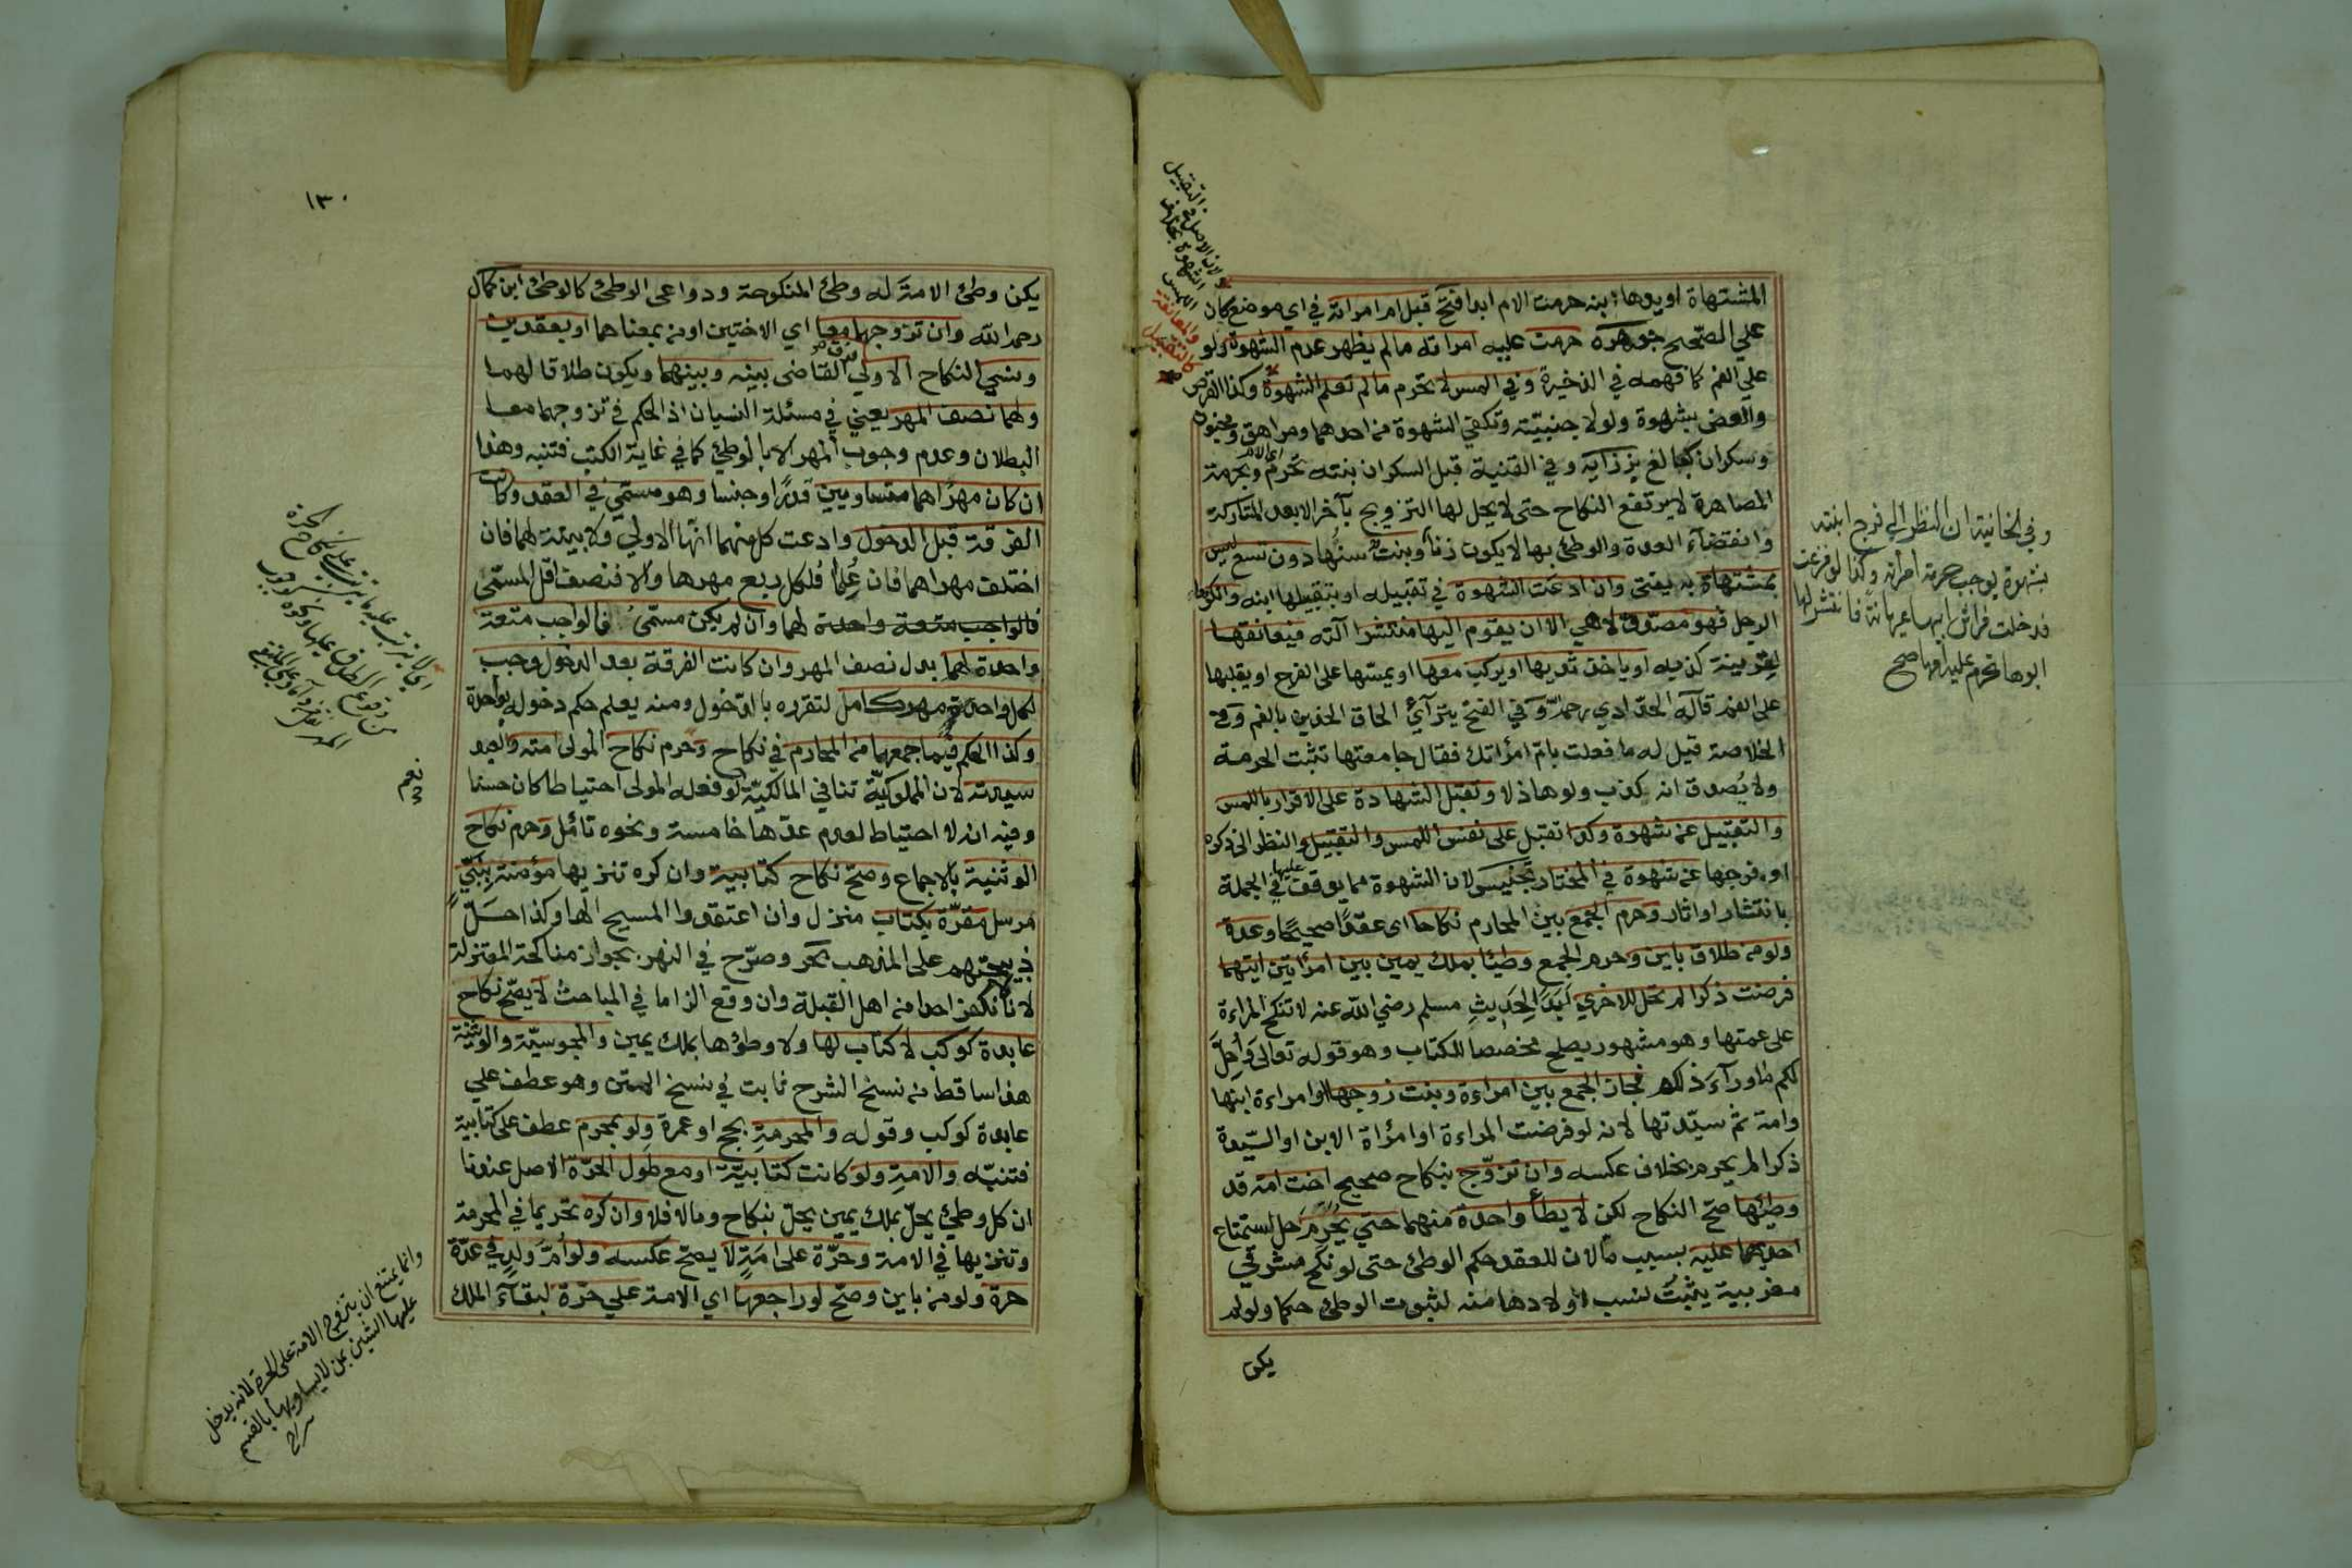 المشتهاة او يدها ابنه حرمت الام ابدا فتح قبل ام امراته في اي موضع كان
علي الصحيح جوهره حرمت عليه امراته مالم يظهر عدم الشهوة ولو
علي الفم كما فهمه في الذخيرة وفي المس لا تحرم مالم تعلم الشهوة وكذا القرص
والعض بشهوة ولو لاجنبيّة وتكفي الشهوة من احدهما ومراهق ومجنون
وسكران كبالغ بزازيه وفي القنية قبل السكران بنته تحرم الام وبحرمة
المصاهرة لا يرتفع النكاح حتى لا يحل لها التزويج بآخر الا بعد المتاركة
وانقضاء العدة والوطئ بها لا يكون زنا وبنت سنها دون تسع ليس
بمشتهاة به يفتى وان ادعت الشهوة في تقبيله او بتقبيلها ابنه وانكرها
الرجل فهو مصدّق لا هي الا ان يقوم اليها منتشرا آلته فيعانقها
لقرينة كذبه او ياخذ ثديها او يركب معها او يمسّها على الفرج او يقبلها
على الفم قاله الحدادي رحمه وفي الفتح يترآئ الحاق الخدين بالفم وفي
الخلاصة قيل له ما فعلت بامّ امرأتك فقال جامعتها تثبت الحرمة
ولا يُصدق انه كذب ولو هاذلا وتقبل الشهادة على الاقرار باللمس
والتقبيل عن شهوة وكذا تقبل على نفس اللمس والتقبيل والنظر الى ذكره
او فرجها عن شهوة في المختار تجنيس لان الشهوة مما يوقف عليها في الجملة
بانتشار او اثار وحرم الجمع بين المحارم نكاحا اى عقدا صحيحا وعدة
ولو من طلاق باين وحرم الجمع وطيئا بملك يمين بين امرأتين ايتهما
فرضت ذكرا لم تحل للاخري ابدا لحديث مسلم رضي الله عنه لا تنكح المراءة
على عمتها وهو مشهور يصلح مخصصا للكتاب وهو قوله تعالى وأحلّ
لكم ما ورآء ذلكم فجاز الجمع بين امراءة وبنت زوجها او امراءة ابنها
وامة ثم سيّدتها لانه لو فرضت المراءة او امرأة الابن او السّيدة
ذكرا لم يحرم بخلاف عكسه وان تزوّج بنكاح صحيح اخت امة قد
وطئها صحّ النكاح لكن لا يطأ واحدة منهما حتي يحرّم حل استمتاع
احديهما عليه بسبب ما لان للعقد حكم الوطئ حتى لو نكح مشرقي
مغربية يثبت نسب اولادها منه لثبوت الوطئ حكما ولو لم
يكن
وفي الخانية ان النظر الي فرج ابنته
بشهوة يوجب حرمة امرأته وكذا لو فزعت
فدخلت فراش ابيها عريانة فانتشر لها
ابوها تحرم عليه امها صح
١٣٠
يكن وطئ الامة له وطئ المنكوحة ودواعي الوطئ كالوطئ ابن كمال
رحمه الله وان تزوجهما معا اي الاختين او من بمعناهما او بعقدين
ونسي النكاح الاولي فرق القاضى بينه وبينهما ويكون طلاقا لهما
ولهما نصف المهر يعني في مسئلة النسيان اذ الحكم في تزوجهما معا
البطلان وعدم وجوب المهر الا بالوطئ كما في غاية الكتب فتنبه وهذا
ان كان مهراهما متساويين قدرا وجنسا وهو مسمّي في العقد وكانت
الفرقة قبل الدخول وادعت كل منهما انها الاولي ولا بينة لهما فان
اختلف مهراهما فان علما فلكل ربع مهرها والا فنصف اقل المسمّى
فالواجب متعة واحدة لهما وان لم يكن مسمّى فالواجب متعة
واحدة لهما بدل نصف المهر وان كانت الفرقة بعد الدخول وجب
لكل واحدة مهر كامل لتقرره بالدّخول ومنه يعلم حكم دخوله بواحدة
وكذا الحكم فيما جمعهما من المحارم في نكاح وحرم نكاح المولى امته والعبد
سيدته لان المملوكيّة تنافي المالكيّة لو فعله المولى احتياطا كان حسنا
وفيه انه لا احتياط لعدم عدّها خامسة ونحوه تامّل وحرم نكاح
الوثنية بالاجماع وصح نكاح كتابية وان كره تنزيها مؤمنة بنبيّ
مرسل مقرّة بكتاب منزل وان اعتقدوا المسيح الها وكذا حلّ
ذبيحتهم على المذهب بحر وصرّح في النهر بجواز مناكحة المعتزلة
لانا لا نكفر احدا من اهل القبلة وان وقع الزاما في المباحث لا يصح نكاح
عابدة كوكب لا كتاب لها ولا وطؤها بملك يمين والمجوسيّة والوثنية
هذا ساقط من نسخ الشرح ثابت في نسخ المتن وهو عطف علي
عابدة كوكب وقوله والمحرمة بحج او عمرة ولو بمحرم عطف على كتابية
فتنبّه والامة ولو كانت كتابيّة او مع طول الحرّة الاصل عندنا
ان كل وطئ يحلّ بملك يمين يحلّ بنكاح ومالا فلا وان كره تحريما في المحرمة
وتنزيها في الامة وحرّة على امة لا يصح عكسه ولو امّ ولد في عدّة
حرة ولو من باين وصحّ لو راجعها اي الامة علي حرّة لبقآء الملك
وانما يمتنع ان يتزوج الامة على الحرة لانه يدخل
عليها الشين بمن لا يساويها بالقسم
سراج